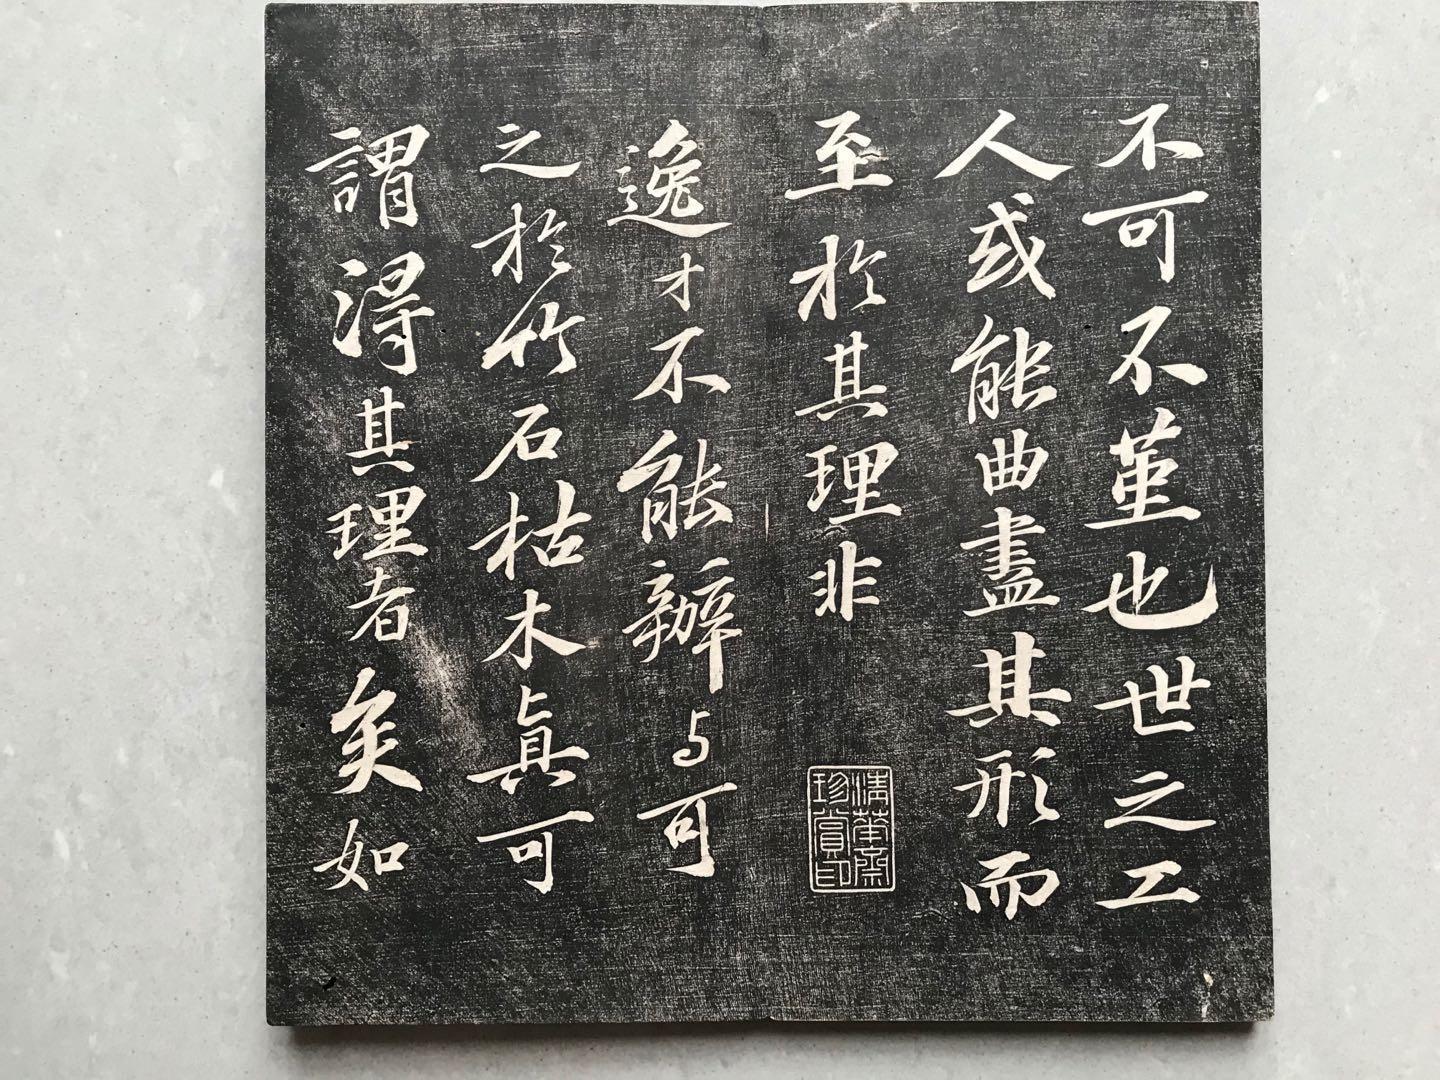 不可不堇也世之工
人或能曲盡其形而
至於其理非
清華齋
珍賞印
逸才不能辨与可
之於竹石枯木眞可
謂得其理者矣如